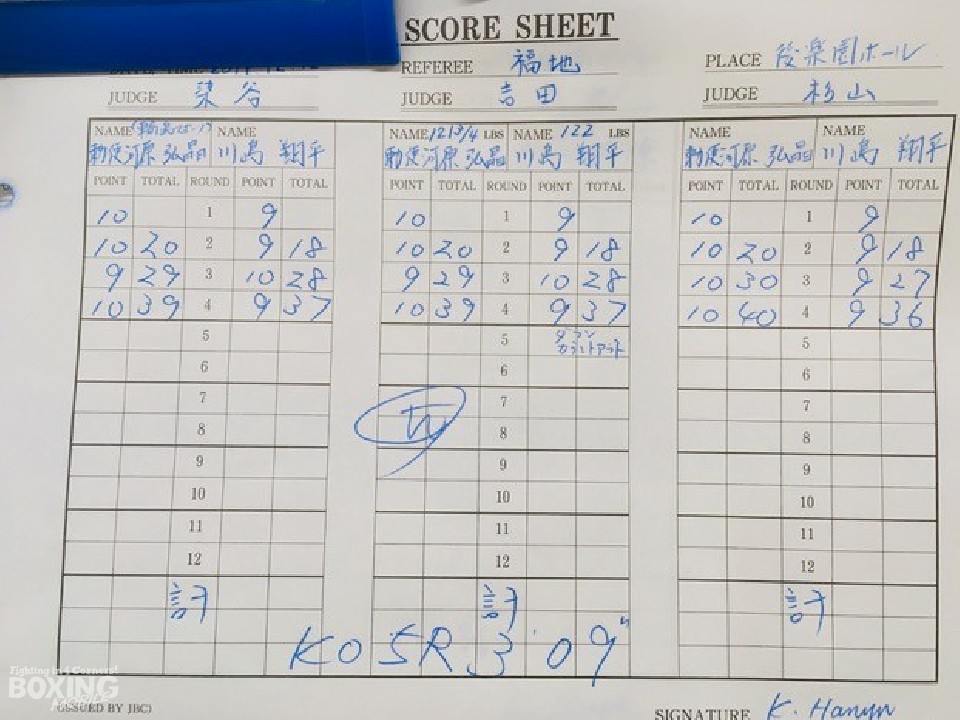 SCORE SHEET
REFEREE 福地
PLACE 後楽園ホール
JUDGE 染谷 JUDGE 吉田 JUDGE 杉山
NAME NAME NAME 121 3/4 LBS NAME 122 LBS NAME NAME
勅使河原 弘晶 川島 翔平 勅使河原 弘晶 川島 翔平 勅使河原 弘晶 川島 翔平
POINT TOTAL ROUND POINT TOTAL POINT TOTAL ROUND POINT TOTAL POINT TOTAL ROUND POINT TOTAL
10 1 9 10 1 9 10 1 9
10 20 2 9 18 10 20 2 9 18 10 20 2 9 18
9 29 3 10 28 9 29 3 10 28 10 30 3 9 27
10 39 4 9 37 10 39 4 9 37 10 40 4 9 36
5 5 ダウン カウントアウト 5
6 6 6
7 7 7
8 8 8
9 9 9
10 10 10
11 11 11
12 12 12
計 計 計
KO 5R 3'09"
Fighting in 4 Corners!
BOXING
MOBILE
ISSUED BY JBC)
SIGNATURE